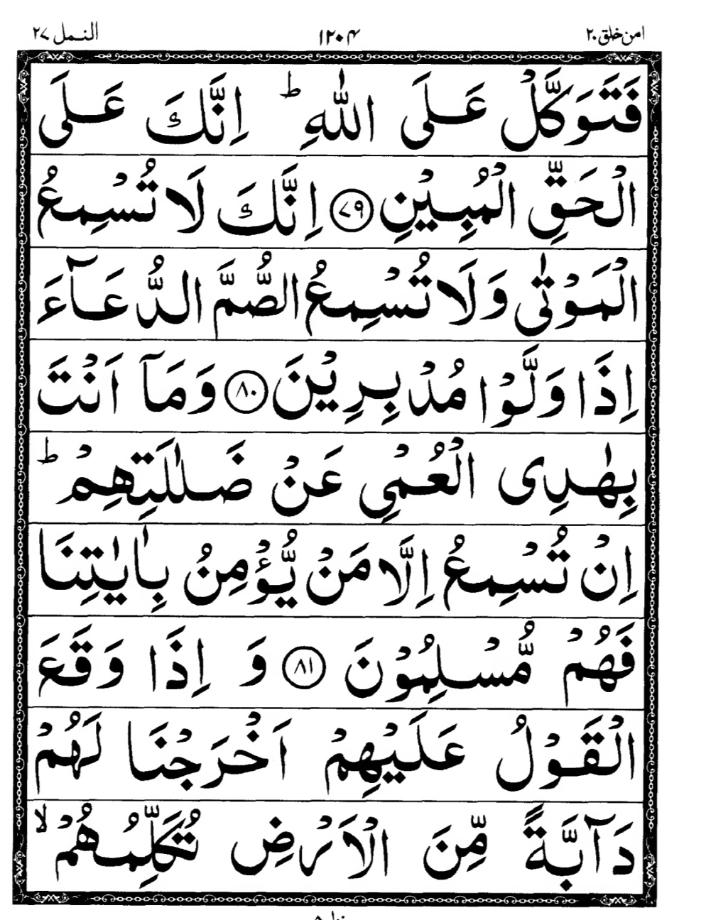 امن خلق ۲۰ ۱۲۰۴ النمل ۲۷
فَتَوَكَّلْ عَلَى اللّٰهِ ؕ اِنَّكَ عَلَى
الْحَقِّ الْمُبِيْنِ ۷۹ اِنَّكَ لَا تُسْمِعُ
الْمَوْتٰى وَلَا تُسْمِعُ الصُّمَّ الدُّعَآءَ
اِذَا وَلَّوْا مُدْبِرِيْنَ ۸۰ وَمَآ اَنْتَ
بِهٰدِى الْعُمْىِ عَنْ ضَلٰلَتِهِمْ ؕ
اِنْ تُسْمِعُ اِلَّا مَنْ يُّؤْمِنُ بِاٰيٰتِنَا
فَهُمْ مُّسْلِمُوْنَ ۸۱ وَ اِذَا وَقَعَ
الْقَوْلُ عَلَيْهِمْ اَخْرَجْنَا لَهُمْ
دَآبَّةً مِّنَ الْاَرْضِ تُكَلِّمُهُمْ ۙ